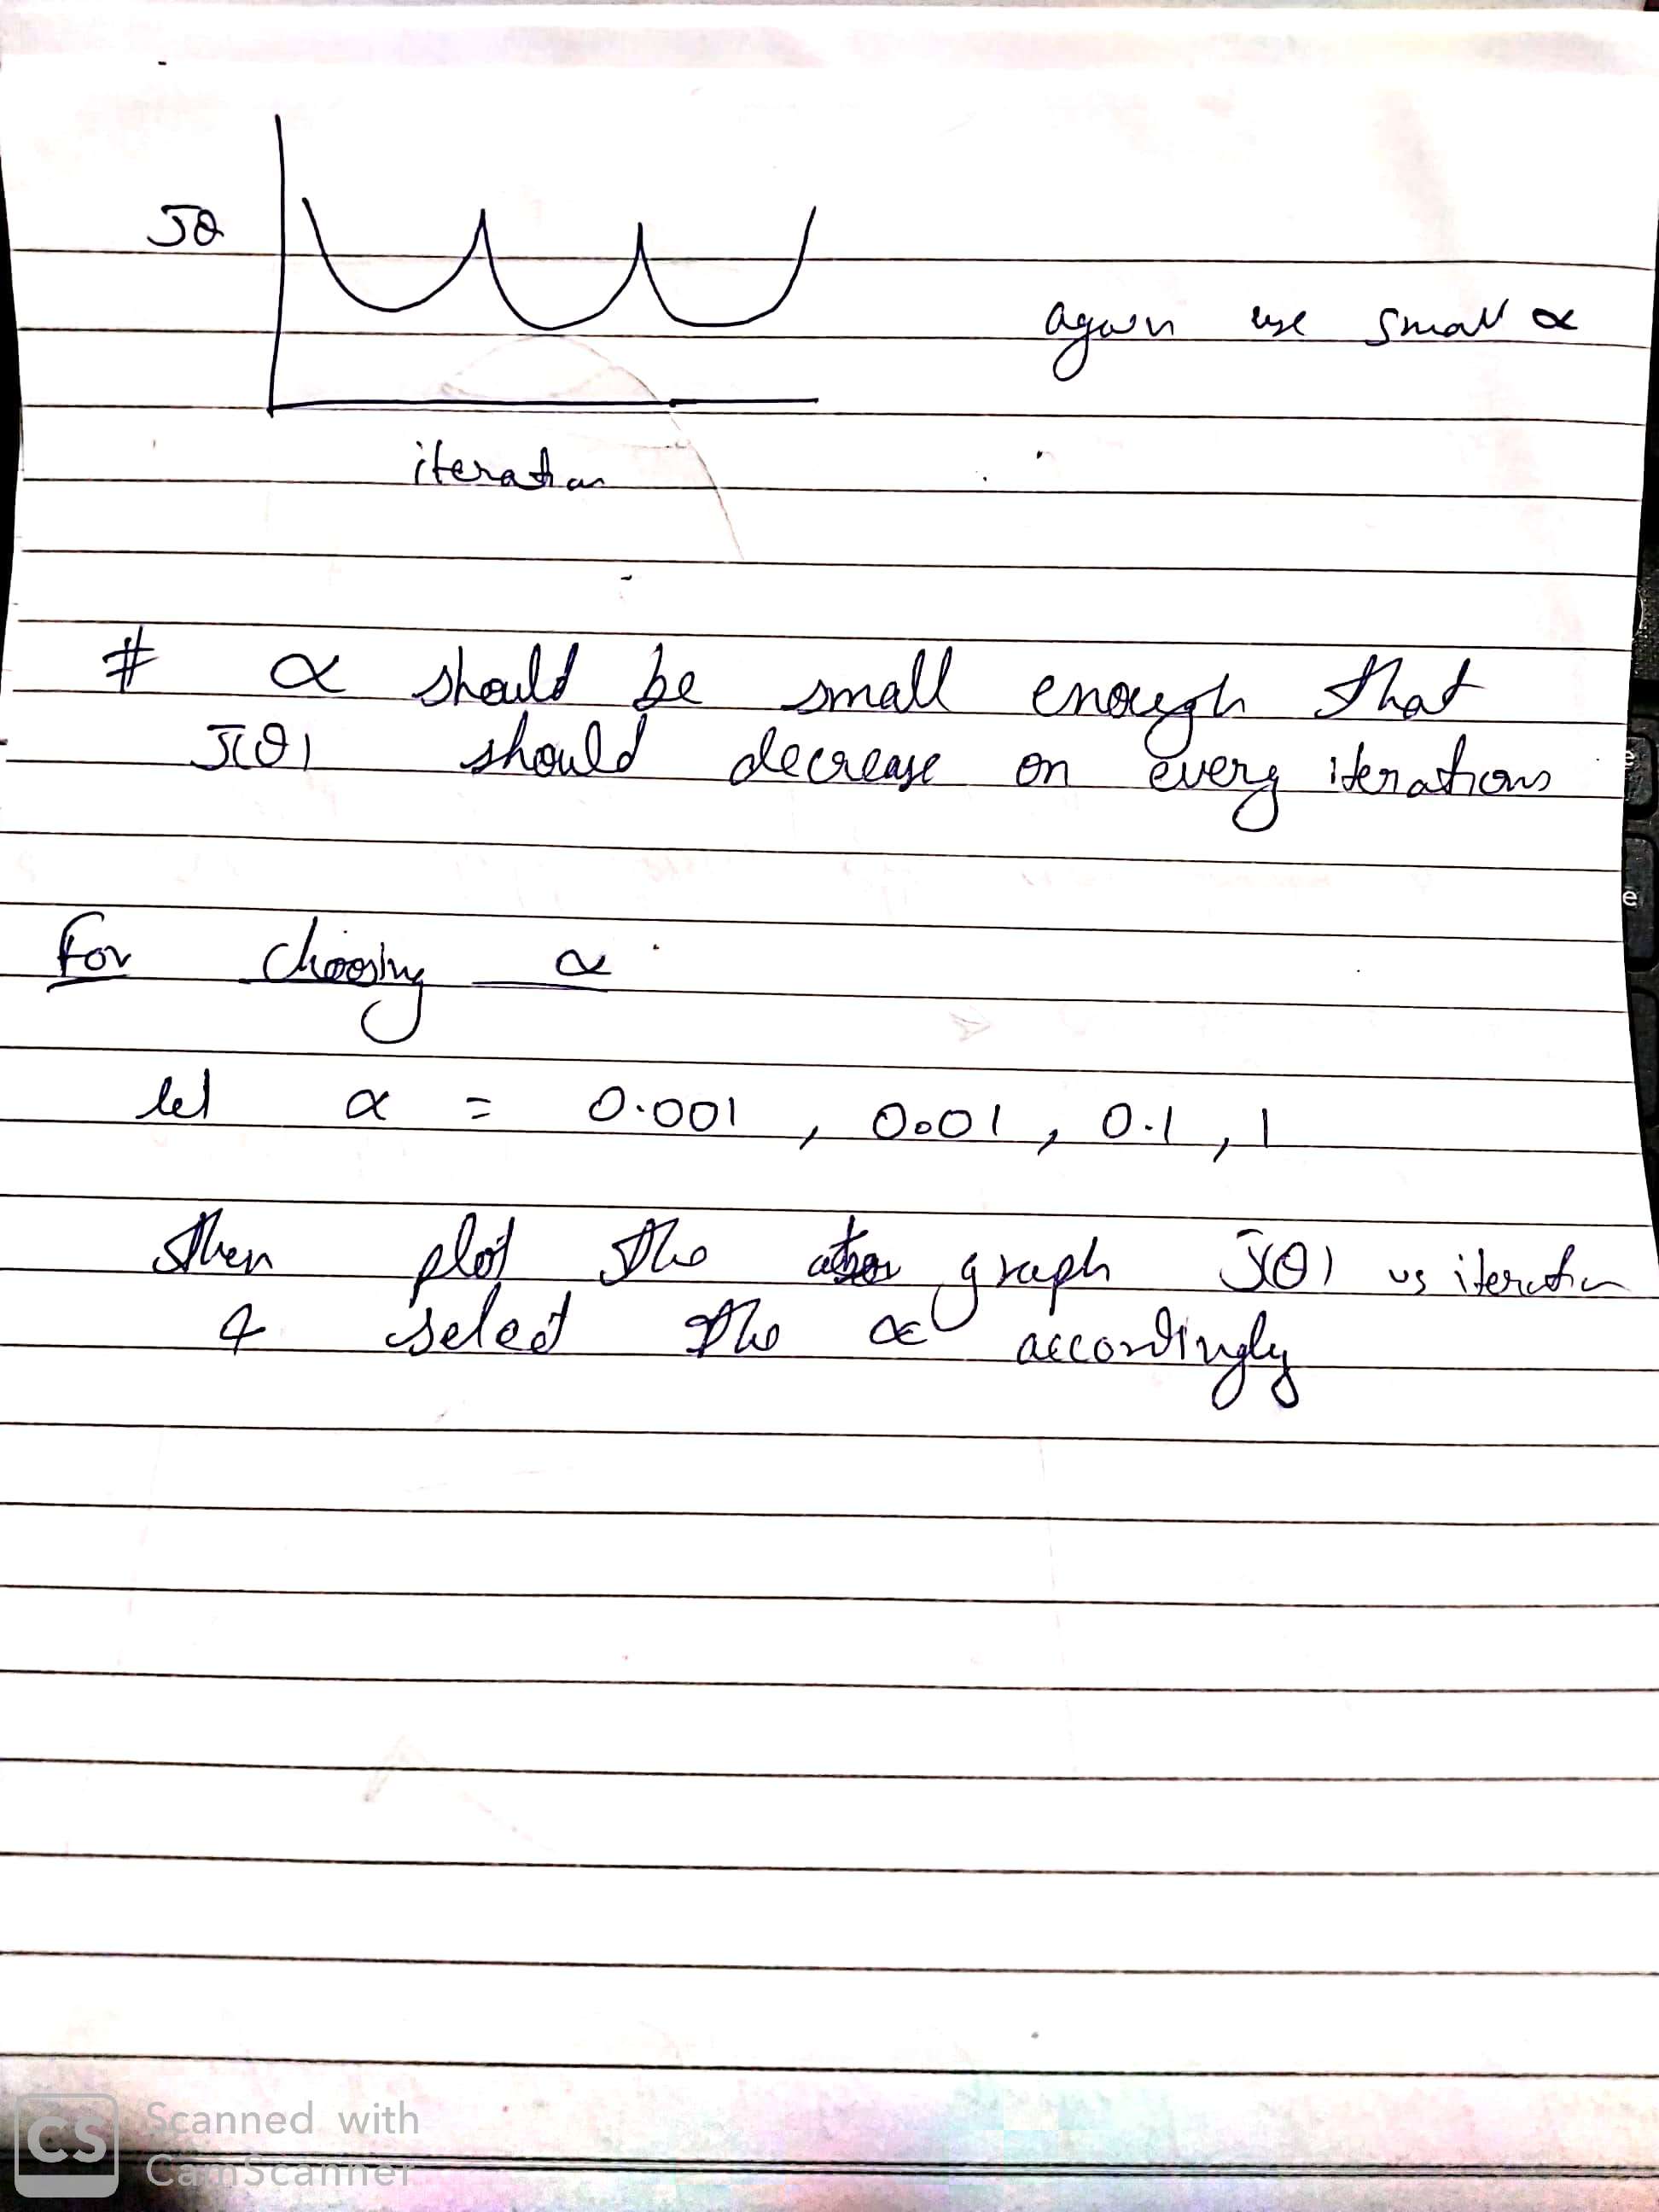 Jθ
again use small α
iteration
# α should be small enough that
J(θ) should decrease on every iterations
For choosing α
let α = 0.001, 0.01, 0.1, 1
then plot the graph J(θ) vs iteration
& select the α accordingly
CS Scanned with
CamScanner